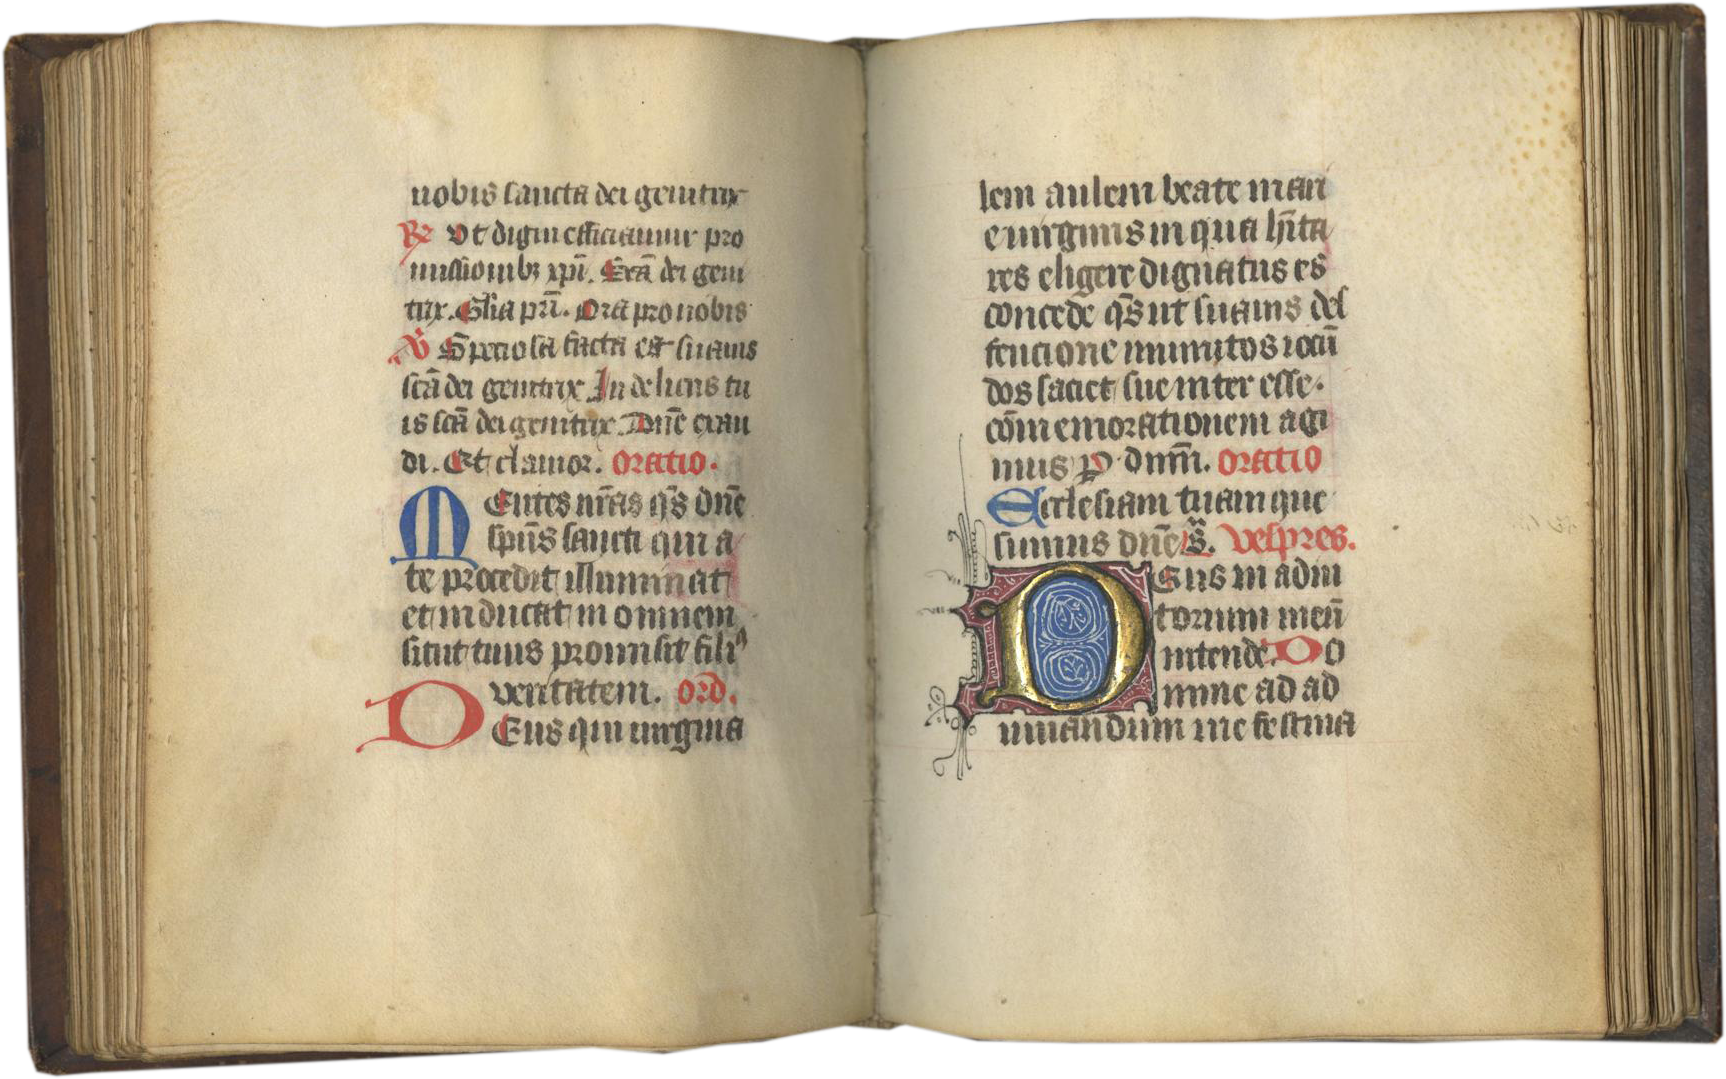 nobis sancta dei genitrix
R̷ Ut digni efficiamur pro
missionibꝫ xp̄i. Ora dei geni
trix. Gl̄ia pr̄i. Ora pro nobis
V̷ Speciosa facta es suauis
sc̄a dei genitrix In deliciis tu
is sc̄a dei genitrix. Dn̄e exau
di. Et clamor. oratio.
Mentes nr̄as qs̄ dn̄e
sp̄us sancti qui a
te procedit illuminat
et inducat in omnem
sicut tuus promisit filiꝰ
veritatem. ord.
Deus qui virgina
lem aulem beate mari
e uirginis in qua hīta
res eligere dignatus es
concede qs̄ ut suauis def
fencione munitos iocū
dos faciet sue inter esse.
cōmemorationem agi
mus P dnm̄. oratio
Ecclesiam tuam que
sumus dn̄e s̄. Vespres.
Deus in adiu
torium meū
intende. Do
mine ad ad
iuuandum me festina